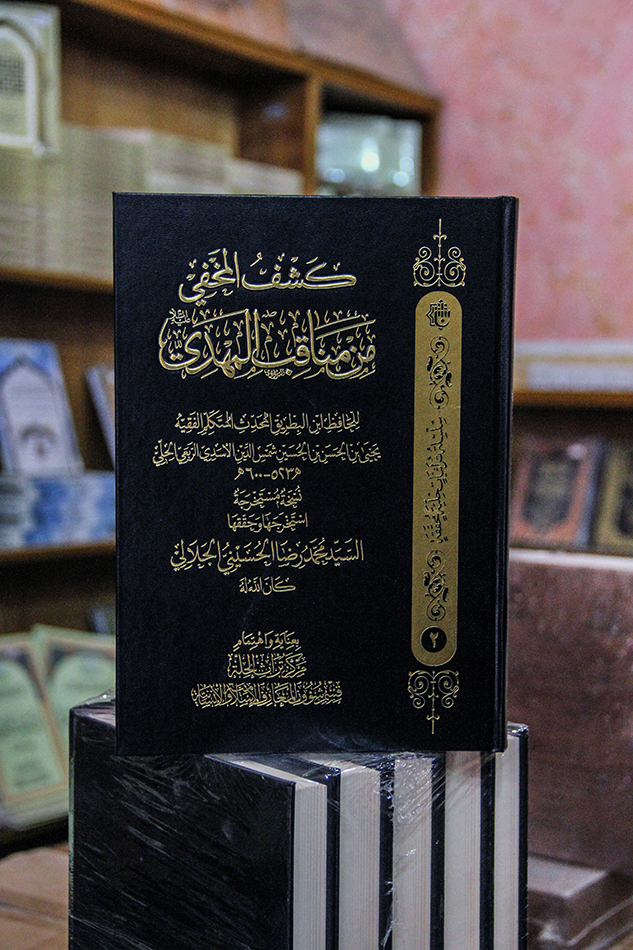 كَشْفُ المَخْفِي
مِنْ مَنَاقِبِ المَهْدِيِّ
لِلحَافِظِ ابْنِ البِطْرِيقِ المُحَدِّثِ المُتَكَلِّمِ الفَقِيهِ
يَحْيَى بْنِ الحَسَنِ بْنِ الحُسَيْنِ بْنِ شَمْسِ الدِّينِ الأَسَدِيِّ الرَّبَعِيِّ الحِلِّيِّ
٥٢٣ - ٦٠٠هـ
نُسْخَةٌ مُسْتَخْرَجَةٌ
اسْتَخْرَجَهَا وَحَقَّقَهَا
السَّيِّدُ مُحَمَّدرِضَا الحُسَيْنِيُّ الجَلَالِيُّ
كَانَ اللهُ لَهُ
بِعِنَايَةِ وَاهْتِمَامِ
مَرْكَزِ تُرَاثِ الحِلَّةِ
قِسْمِ شُؤُونِ المَعَارِفِ الإِسْلَامِيَّةِ وَالإِنْسَانِيَّةِ
سِلْسِلَةُ تُرَاثِيَّات حِلِّيَّة مُحَقَّقَة
٢